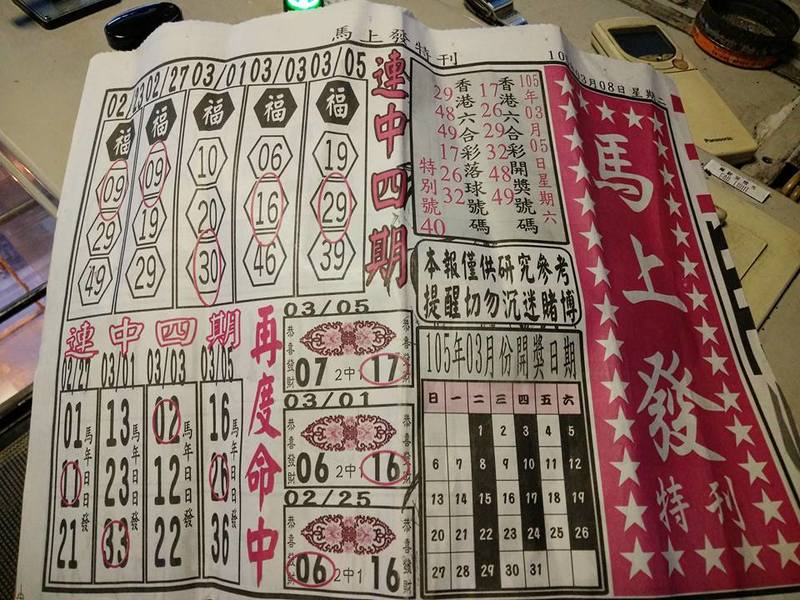 馬上發特刊
03月08日 星期二
馬上發
特刊
105年03月05日星期六
香港六合彩開獎號碼
17 26 29 32 48 49
香港六合彩落球號碼
29 48 49 17 26 32
特別號 40
本報僅供研究參考
提醒切勿沉迷賭博
連中四期
02/23 02/27 03/01 03/03 03/05
福 福 福 福 福
09 09 10 06 19
29 19 20 16 29
49 29 30 46 39
連中四期
02/27 03/01 03/03 03/05
01 13 02 16
11 23 12 26
21 33 22 36
馬年日日發 馬年日日發 馬年日日發 馬年日日發
再度命中
03/05
恭喜發財 恭喜發財
07 2中1 17
03/01
恭喜發財 恭喜發財
06 2中1 16
02/25
恭喜發財 恭喜發財
06 2中1 16
105年03月份開獎日期
日 一 二 三 四 五 六
1 2 3 4 5
6 7 8 9 10 11 12
13 14 15 16 17 18 19
20 21 22 23 24 25 26
27 28 29 30 31
Panasonic